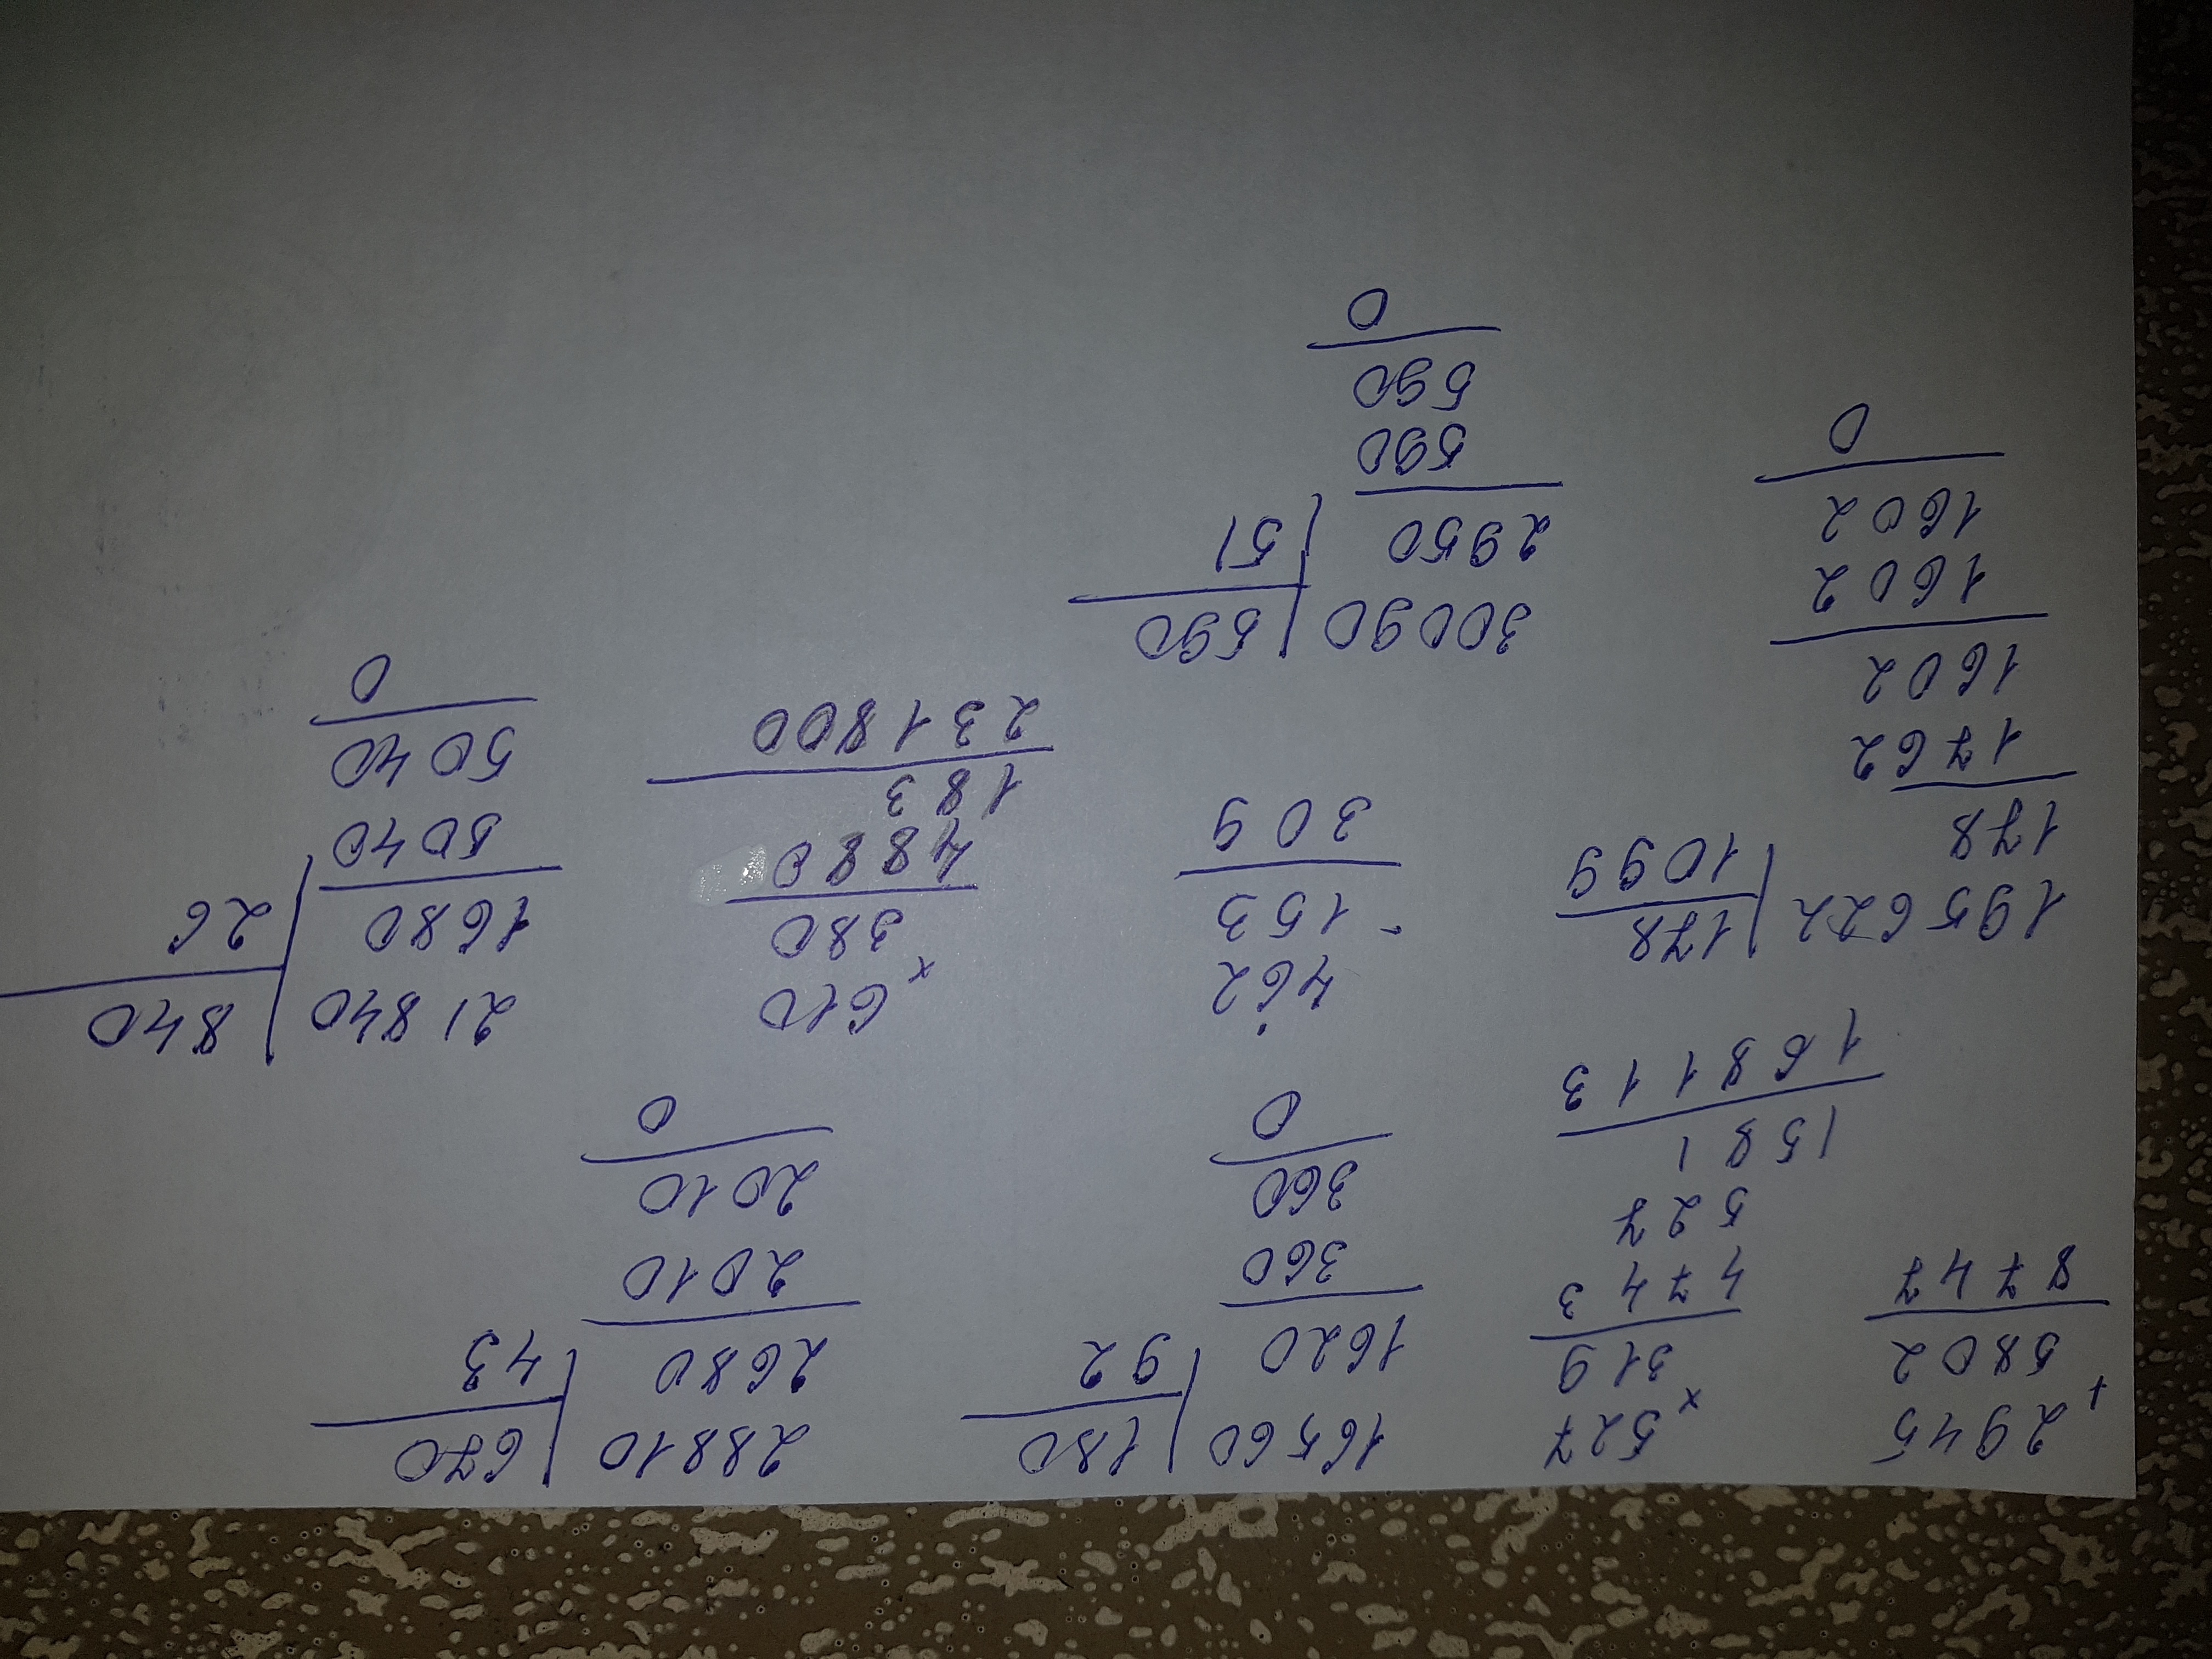 + 2945
5802
8747
x 527
319
4743
527
1581
168113
16560 | 180
1620 | 92
360
360
0
28810 | 670
2680 | 43
2010
2010
0
195622 | 178
178 | 1099
1762
1602
1602
1602
0
462
- 153
309
x 610
380
4880
183
231800
21840 | 840
1680 | 26
5040
5040
0
30090 | 590
2950 | 51
590
590
0